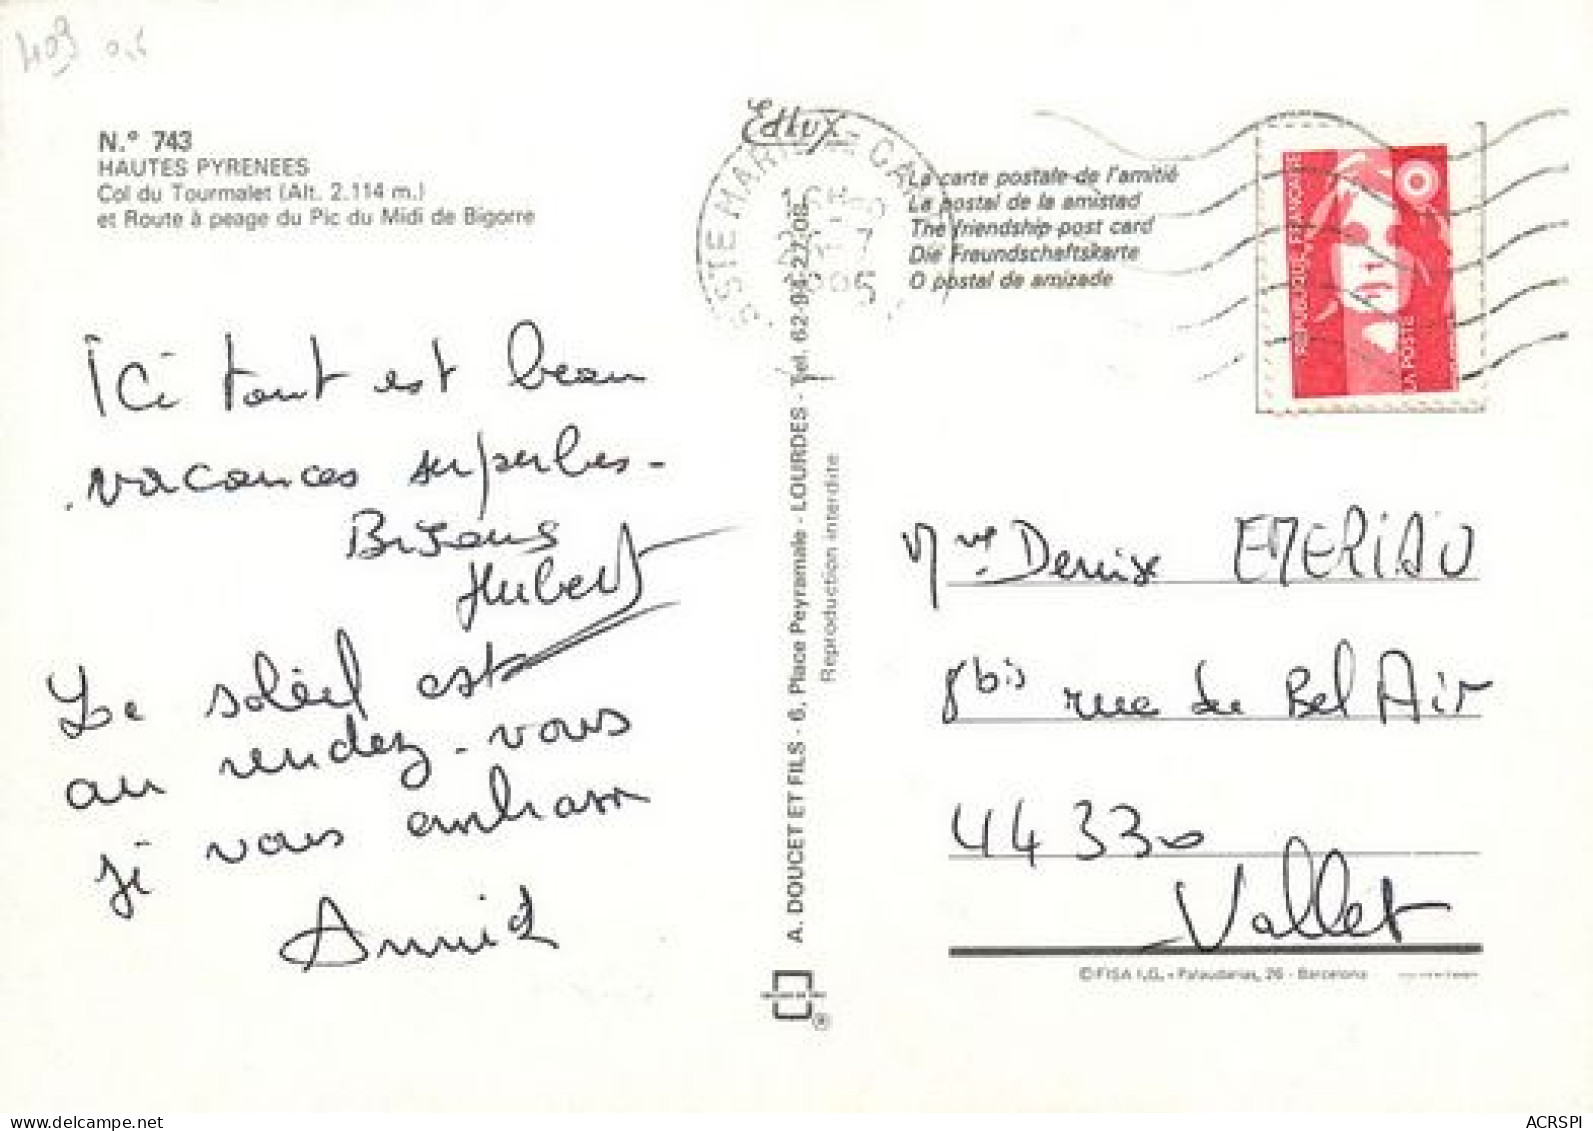 403
N.º 743
HAUTES PYRENEES
Col du Tourmalet (Alt. 2.114 m.)
et Route à peage du Pic du Midi de Bigorre
Ici tout est beau
vacances superbes-
Bisous
Hubert
Le soleil est
au rendez-vous
je vous embrasse
Annick
A. DOUCET ET FILS - 6, Place Peyramale - LOURDES - Tel. 62-94-27-08
Reproduction interdite
Edlux
STE MARIE DE CA
7
La carte postale de l'amitié
La postal de la amistad
The friendship post card
Die Freundschaftskarte
O postal de amizade
REPUBLIQUE FRANÇAISE
LA POSTE
Mme Denise EMERIAU
8bis rue du Bel Air
44330
Vallet
©FISA I.G. - Palaudarias, 26 - Barcelona
®
ACRSPI